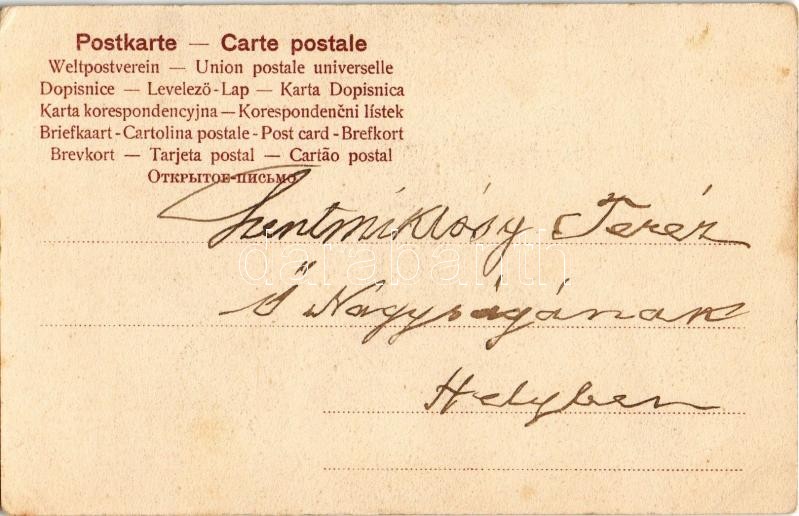 Postkarte — Carte postale
Weltpostverein — Union postale universelle
Dopisnice — Levelező-Lap — Karta Dopisnica
Karta korespondencyjna — Korespondenčni lístek
Briefkaart - Cartolina postale - Post card - Brefkort
Brevkort — Tarjeta postal — Cartão postal
Открытое письмо
Szentmiklósy Teréz
Ő Nagyságának
Helyben
darabanth